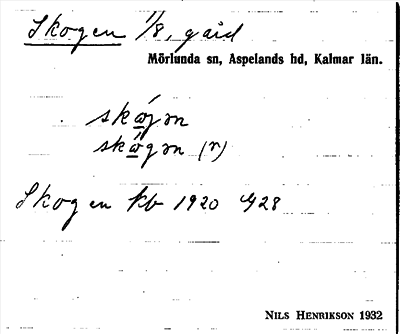 Skogen 1/8, gård
Mörlunda sn, Aspelands hd, Kalmar län.
Skogen kb 1920 428
NILS HENRIKSON 1932